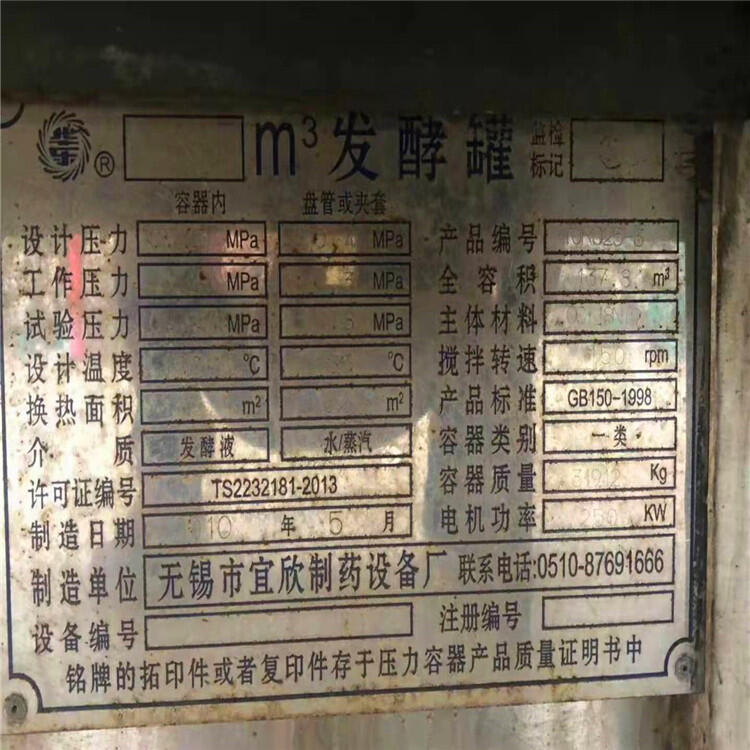 ® m³发酵罐 监检标记
容器内 盘管或夹套
设计压力 MPa MPa 产品编号
工作压力 MPa MPa 全容积 137.8 m³
试验压力 MPa MPa 主体材料
设计温度 ℃ ℃ 搅拌转速 150 rpm
换热面积 m² m² 产品标准 GB150-1998
介质 发酵液 水/蒸汽 容器类别 一类
许可证编号 TS2232181-2013 容器质量 31912 Kg
制造日期 10 年 5 月 电机功率 250 KW
制造单位 无锡市宜欣制药设备厂 联系电话:0510-87691666
设备编号 注册编号
铭牌的拓印件或者复印件存于压力容器产品质量证明书中